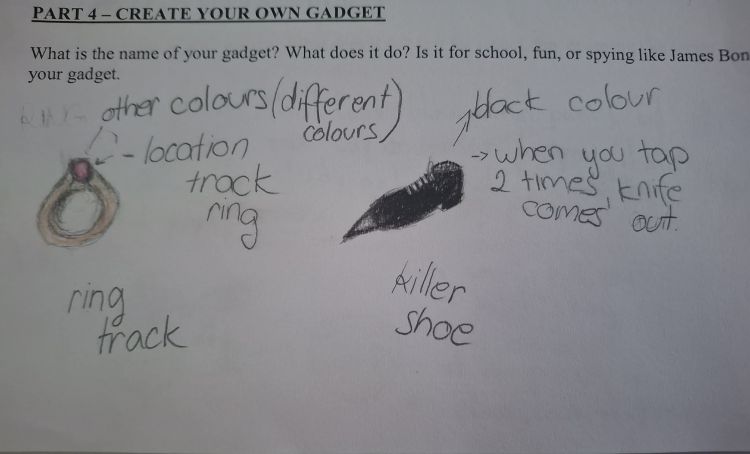 PART 4 – CREATE YOUR OWN GADGET
What is the name of your gadget? What does it do? Is it for school, fun, or spying like James Bon
your gadget.
other colours (different
colours)
- location
track
ring
ring
track
black colour
-> when you tap
2 times, knife
comes out.
killer
shoe